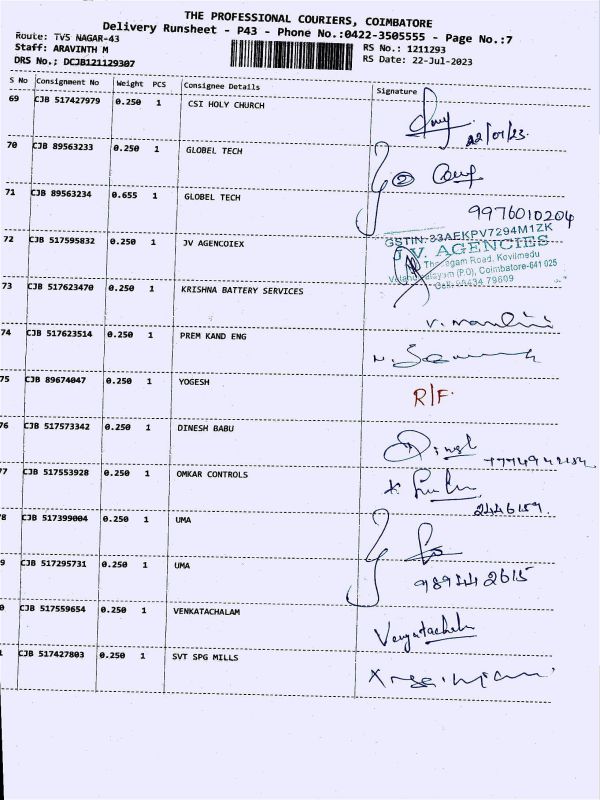 THE PROFESSIONAL COURIERS, COIMBATORE
Delivery Runsheet - P43 - Phone No.:0422-3505555 - Page No.:7
Route: TVS NAGAR-43
Staff: ARAVINTH M
DRS No.; DCJB121129307
RS No.: 1211293
RS Date: 22-Jul-2023
S No Consignment No Weight PCS Consignee Details Signature
69 CJB 517427979 0.250 1 CSI HOLY CHURCH
22/07/23
70 CJB 89563233 0.250 1 GLOBEL TECH
71 CJB 89563234 0.655 1 GLOBEL TECH
9976010204
72 CJB 517595832 0.250 1 JV AGENCOIEX
GSTIN:33AEKPV7294M1ZK
J.V. AGENCIES
Road, Kovilmedu
(P.O), Coimbatore-641 025
73 CJB 517623470 0.250 1 KRISHNA BATTERY SERVICES
74 CJB 517623514 0.250 1 PREM KAND ENG
75 CJB 89674047 0.250 1 YOGESH R/F.
76 CJB 517573342 0.250 1 DINESH BABU
77 CJB 517553928 0.250 1 OMKAR CONTROLS
8 CJB 517399004 0.250 1 UMA
9 CJB 517295731 0.250 1 UMA
0 CJB 517559654 0.250 1 VENKATACHALAM
CJB 517427803 0.250 1 SVT SPG MILLS